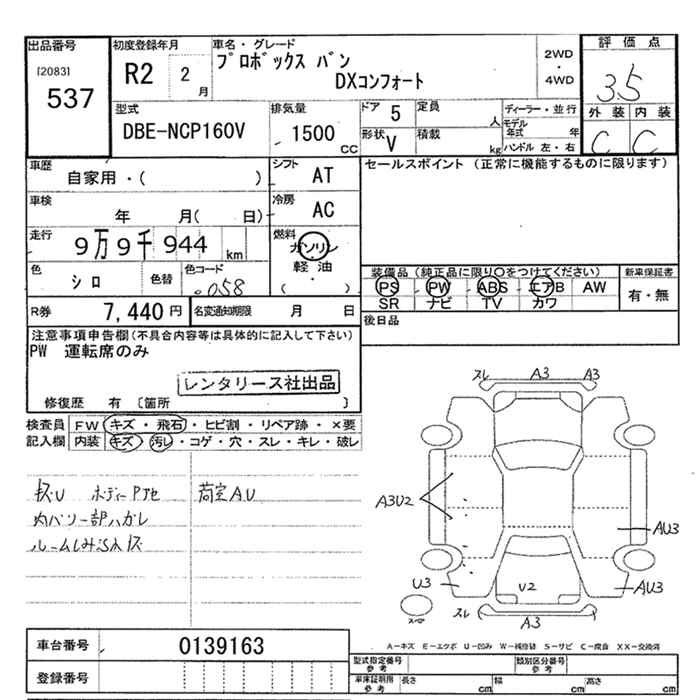 出品番号
[2083]
537
初度登録年月
R2 2 月
車名・グレード
プロボックス バン
DXコンフォート
2WD
・
4WD
評価点
3.5
外装 内装
C C
型式
DBE-NCP160V
排気量
1500 CC
ドア 5
形状 V
定員 人
積載 kg
ディーラー・並行
モデル年式 年
ハンドル 左・右
車歴
自家用・( )
シフト AT
セールスポイント (正常に機能するものに限ります)
車検
年 月( 日)
冷房 AC
走行
9万9千944 km
燃料
ガソリン
軽油
( ・ )
色
シロ
色替
色コード
058
装備品 (純正品に限り〇をつけてください)
PS PW ABS エアB AW
SR ナビ TV カワ
新車保証書
有・無
R券 7,440 円
名変通知期限 月 日
後日品
注意事項申告欄 (不具合内容等は具体的に記入して下さい)
PW 運転席のみ
レンタリース社出品
修復歴 有 〔箇所 〕
検査員記入欄
FW キズ・飛石・ヒビ割・リペア跡・×要
内装 キズ・汚レ・コゲ・穴・スレ・キレ・破レ
ボディーPアセ
荷室AU
内バリ一部ハガレ
ルームしみ込
スレ A3 A3
A3U2
AU3
U3 U2 AU3
スレ A3
スペア
A－キズ E－エクボ U－凹み W－補修跡 S－サビ C－腐食 XX－交換済
車台番号 0139163
登録番号
型式指定番号
参考
類別区分番号
参考
車庫証明用
参考
長さ cm 幅 cm 高さ cm